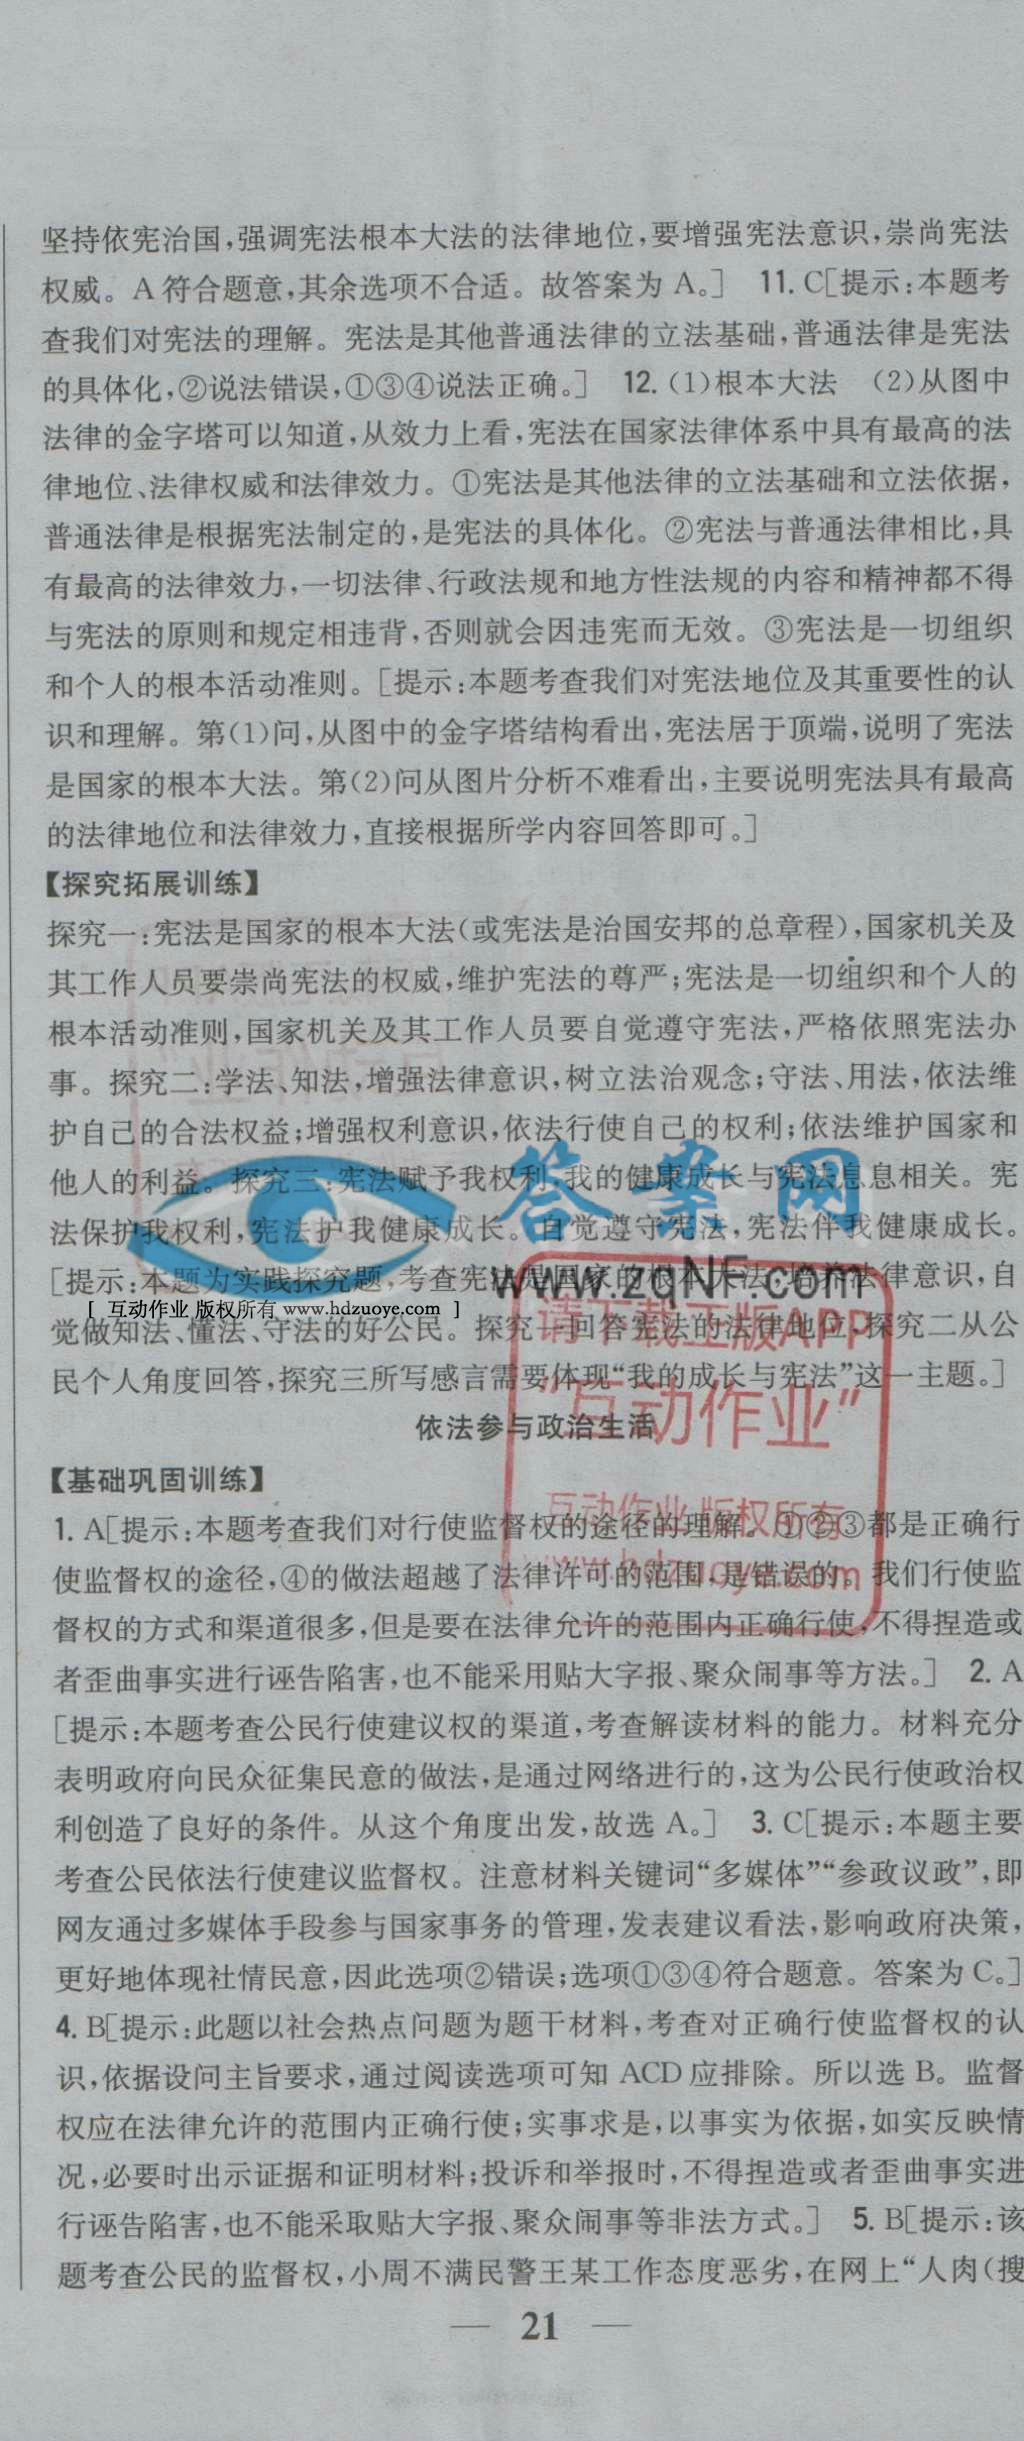 坚持依宪治国,强调宪法根本大法的法律地位,要增强宪法意识,崇尚宪法
权威。A符合题意,其余选项不合适。故答案为A。] 11. C[提示:本题考
查我们对宪法的理解。宪法是其他普通法律的立法基础,普通法律是宪法
的具体化,②说法错误,①③④说法正确。] 12. (1)根本大法 (2)从图中
法律的金字塔可以知道,从效力上看,宪法在国家法律体系中具有最高的法
律地位、法律权威和法律效力。①宪法是其他法律的立法基础和立法依据,
普通法律是根据宪法制定的,是宪法的具体化。②宪法与普通法律相比,具
有最高的法律效力,一切法律、行政法规和地方性法规的内容和精神都不得
与宪法的原则和规定相违背,否则就会因违宪而无效。③宪法是一切组织
和个人的根本活动准则。[提示:本题考查我们对宪法地位及其重要性的认
识和理解。第(1)问,从图中的金字塔结构看出,宪法居于顶端,说明了宪法
是国家的根本大法。第(2)问从图片分析不难看出,主要说明宪法具有最高
的法律地位和法律效力,直接根据所学内容回答即可。]
【探究拓展训练】
探究一:宪法是国家的根本大法(或宪法是治国安邦的总章程),国家机关及
其工作人员要崇尚宪法的权威,维护宪法的尊严;宪法是一切组织和个人的
根本活动准则,国家机关及其工作人员要自觉遵守宪法,严格依照宪法办
事。探究二:学法、知法,增强法律意识,树立法治观念;守法、用法,依法维
护自己的合法权益;增强权利意识,依法行使自己的权利;依法维护国家和
他人的利益。探究三:宪法赋予我权利,我的健康成长与宪法息息相关。宪
法保护我权利,宪法护我健康成长。自觉遵守宪法,宪法伴我健康成长。
[提示:本题为实践探究题,考查宪法是国家的根本大法,培养法律意识,自
觉做知法、懂法、守法的好公民。探究一回答宪法的法律地位,探究二从公
民个人角度回答,探究三所写感言需要体现“我的成长与宪法”这一主题。]
答案网
www.zqNF.com
[ 互动作业 版权所有 www.hdzuoye.com ]
请下载正版APP
“互动作业”
互动作业 版权所有
www.hdzuoye.com
依法参与政治生活
【基础巩固训练】
1. A[提示:本题考查我们对行使监督权的途径的理解。①②③都是正确行
使监督权的途径,④的做法超越了法律许可的范围,是错误的。我们行使监
督权的方式和渠道很多,但是要在法律允许的范围内正确行使,不得捏造或
者歪曲事实进行诬告陷害,也不能采用贴大字报、聚众闹事等方法。] 2. A
[提示:本题考查公民行使建议权的渠道,考查解读材料的能力。材料充分
表明政府向民众征集民意的做法,是通过网络进行的,这为公民行使政治权
利创造了良好的条件。从这个角度出发,故选A。] 3. C[提示:本题主要
考查公民依法行使建议监督权。注意材料关键词“多媒体”“参政议政”,即
网友通过多媒体手段参与国家事务的管理,发表建议看法,影响政府决策,
更好地体现社情民意,因此选项②错误;选项①③④符合题意。答案为C。]
4. B[提示:此题以社会热点问题为题干材料,考查对正确行使监督权的认
识,依据设问主旨要求,通过阅读选项可知ACD应排除。所以选B。监督
权应在法律允许的范围内正确行使;实事求是,以事实为依据,如实反映情
况,必要时出示证据和证明材料;投诉和举报时,不得捏造或者歪曲事实进
行诬告陷害,也不能采取贴大字报、聚众闹事等非法方式。] 5. B[提示:该
题考查公民的监督权,小周不满民警王某工作态度恶劣,在网上“人肉(搜
— 21 —